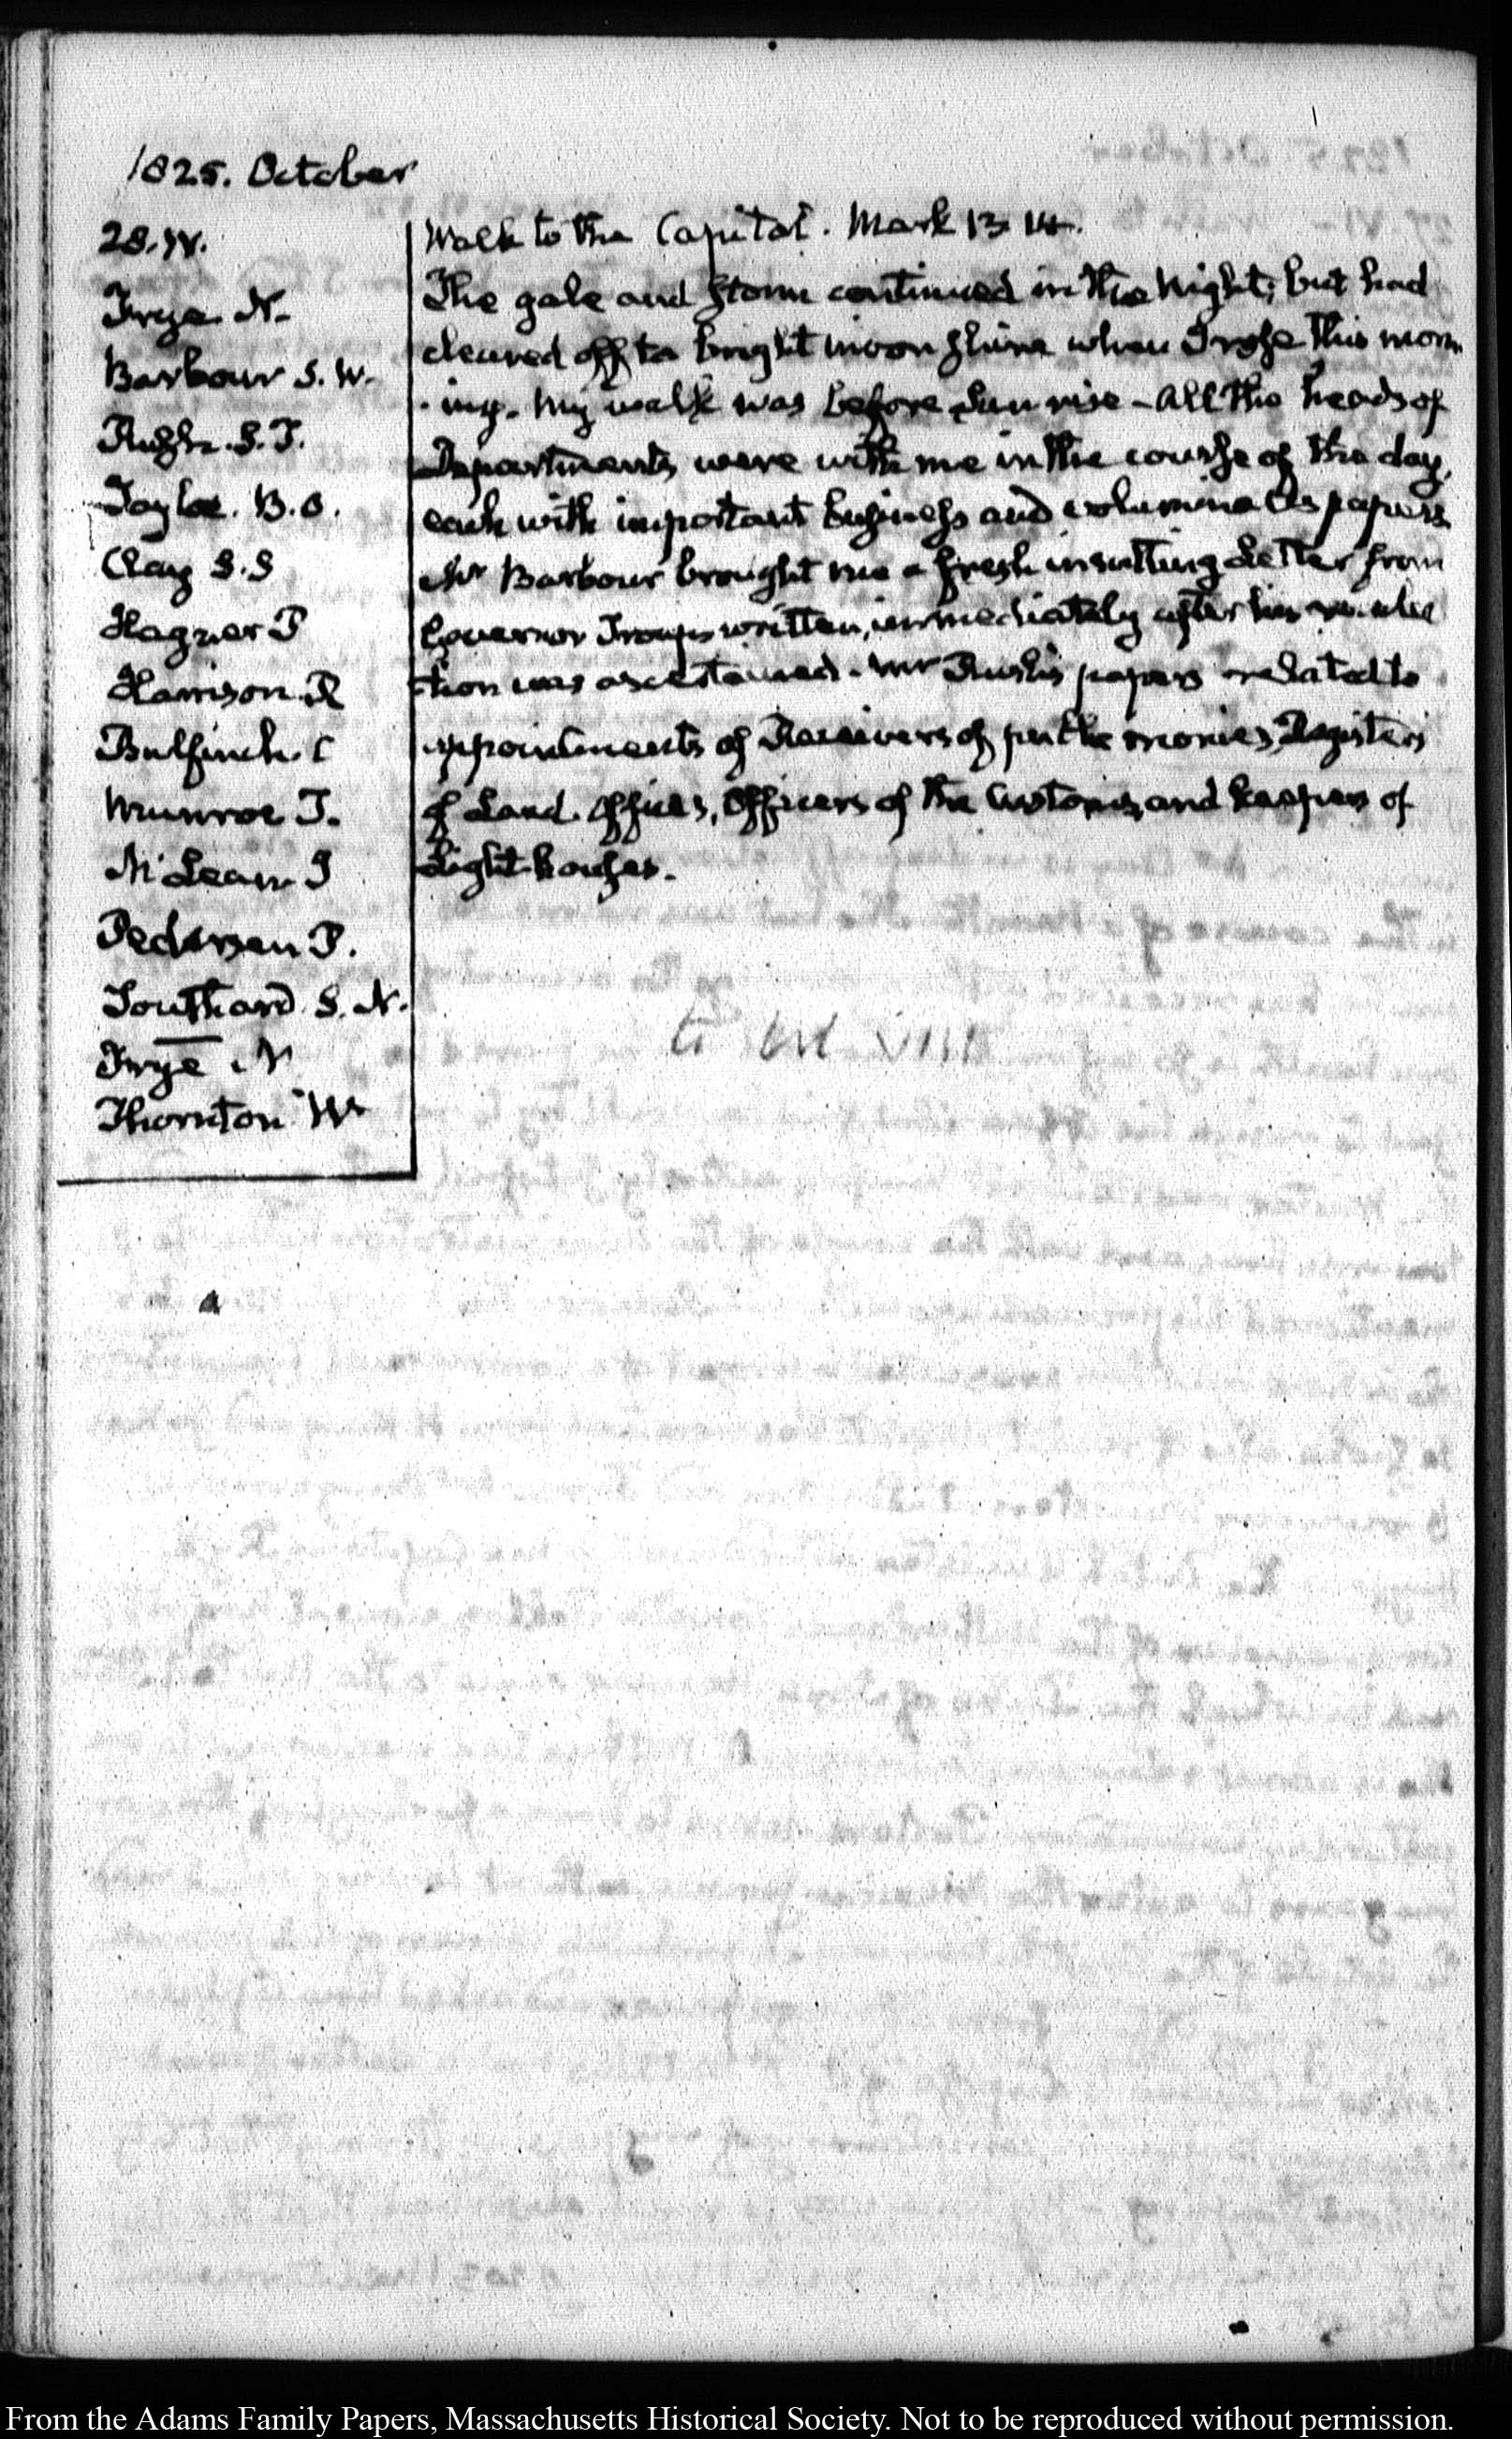 1825. October
28. IV.
Frye. N.
Barbour S. W.
Rush. S. T.
Tayloe. B. O.
Clay S. S
Hagner P
Harrison R
Bulfinch C
Munroe T.
McLean J
Pedersen P.
Southard S. N.
Frye N
Thornton W
Walk to the Capitol. Mark 13 14.
The gale and storm continued in the Night; but had
cleared off to bright moon shine when I rose this morn
-ing. My walk was before Sun rise - All the heads of
Departments were with me in the course of the day,
each with important business and voluminous papers
Mr Barbour brought me a fresh insulting Letter from
Governor Troup written, immediately after his re-elec
tion was ascertained. Mr Rush's papers related to
appointments of Receivers of public monies, Registers
of Land Offices, Officers of the Customs, and keepers of
Light-houses.
From the Adams Family Papers, Massachusetts Historical Society. Not to be reproduced without permission.